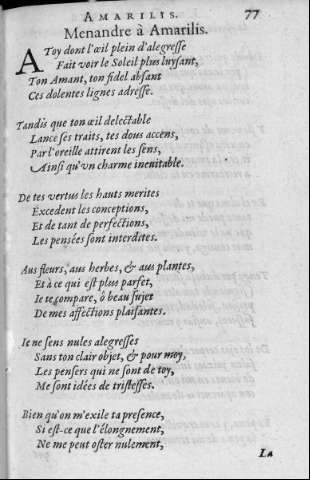 AMARILIS. 77
Menandre à Amarilis.
A Toy dont l'œil plein d'alegresse
Fait voir le Soleil plus luysant,
Ton Amant, ton fidel absant
Ces dolentes lignes adresse.
Tandis que ton œil delectable
Lance ses traits, tes dous accens,
Par l'oreille attirent les sens,
Ainsi qu'vn charme ineuitable.
De tes vertus les hauts merites
Excedent les conceptions,
Et de tant de perfections,
Les pensées sont interdites.
Aus fleurs, aus herbes, & aus plantes,
Et à ce qui est plus parfet,
Ie te compare, ô beau sujet
De mes affections plaisantes.
Ie ne sens nules alegresses
Sans ton clair objet, & pour moy,
Les pensers qui ne sont de toy,
Me sont idées de tristesses.
Bien qu'on m'exile ta presence,
Si est-ce que l'élongnement,
Ne me peut oster nulement,
La